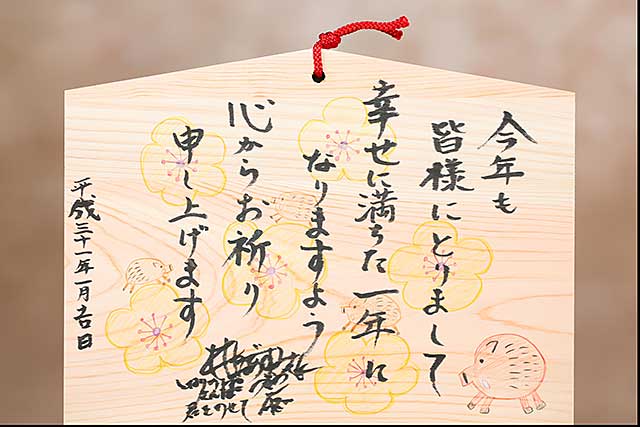 今年も
皆様にとりまして
幸せに満ちた一年に
なりますよう
心からお祈り
申し上げます
平成三十一年一月吉日
君をのせて